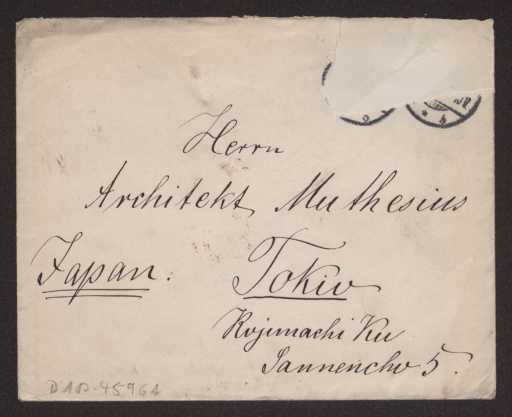 Herrn
Architekt Muthesius
Japan. Tokio
Kojimachi Ku
Sannencho 5.
D 102-45961